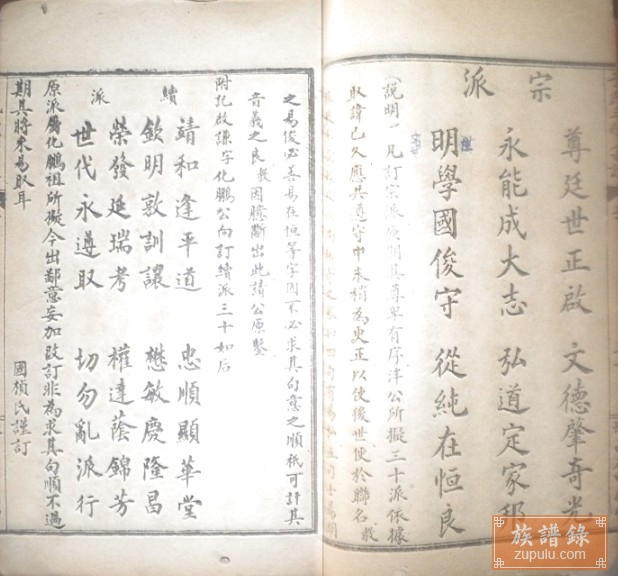 宗派
尊廷世正啟 文德肇奇光
永能成大志 弘道定家邦
明學國俊守 從純在恒良
說明一凡訂宗派原明其尊卑有序津公所擬三十派依據
取諱已久應共遵守中未稍為更正以使後世便於聯名
之易俊必善易在恒等字因不必求其句意之順祇可計其
音義之良 故因臆斷出此請公原鑒
附記啟謙字化鵬公向訂續派三十如后
續派
靖和逢平道 忠順顯華堂
欽明敦訓讓 懋敏慶隆昌
榮發延瑞考 權達蔭錦芳
世代永遵取 切勿亂派行
原派屬化鵬祖所擬今出鄙意妄加改訂非為求其句順不過
期其將來易取耳
國楨氏謹訂
族譜錄
zupulu.com